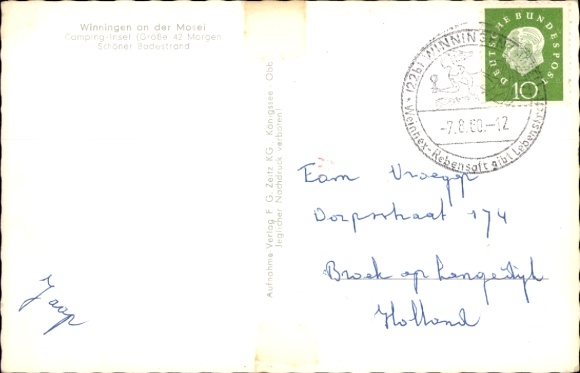 Winningen an der Mosel
Camping-Insel (Große 42 Morgen
Schöner Badestrand
Aufnahme Verlag F. G. Zeitz KG., Königssee Obb.
Jeglicher Nachdruck verboten)
DEUTSCHE BUNDESPOST
10
(22b) WINNINGEN
-7.8.60.-12
Weinhex-Rebensaft gibt Lebenskraft
Fam Vroegop
Dorpsstraat 174
Broek op Langedijk
Holland
Jaap